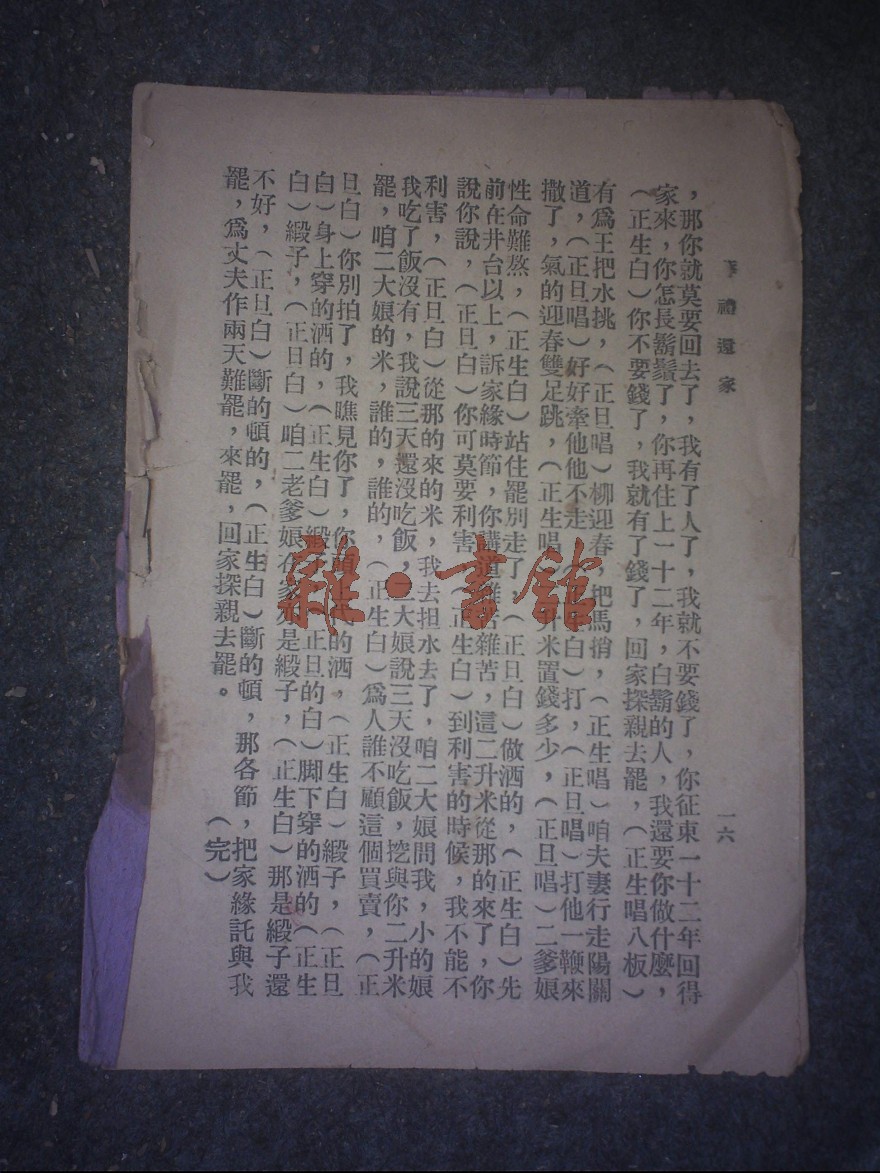 禮還家
一六
，那你就莫要回去了，我有了人了，我就不要錢了，你征東一十二年回得
家來，你怎長鬍鬚了，你再住上一十二年，白鬍的人，我還要你做什麼，
（正生白）你不要錢了，我就有了錢了，回家探親去罷，（正生唱八板）
有爲王把水挑，（正旦唱）柳迎春，把馬捎，（正生唱）咱夫妻行走陽關
道，（正旦唱）好好牽他他不走，（白）打，（正旦唱）打他一鞭來
撒了，氣的迎春雙足跳，（正生唱升米置錢多少，（正旦唱）二爹娘
性命難熬，（正生白）站住罷別走了，（正旦白）做洒的，（正生白）先
前在井台以上，訴家緣時節，你講道雜苦，這二升米從那的來了，你
說你說，（正旦白）你可莫要利害，（正生白）到利害的時候，我不能不
利害，（正旦白）從那的來的米，我去担水去了，咱二大娘問我，小的娘
我吃了飯沒有，我說三天還沒吃飯，大娘說三天沒吃飯，挖與你二升米
罷，咱二大娘的米，誰的，誰的，（正生白）爲人誰不顧這個買賣，（正
旦白）你別拍了，我瞧見你了，你的洒，（正生白）緞子，（正旦
白）身上穿的洒的，（正生白）緞子，（正旦的白）脚下穿的洒的（正生
白）緞子，（正旦白）咱二老爹娘在家是緞子，（正生白）那是緞子還
不好，（正旦白）斷的頓的，（正生白）斷的頓，那各節，把家緣託與我
罷，爲丈夫作兩天難罷，來罷，回家探親去罷。（完）
雜·書館